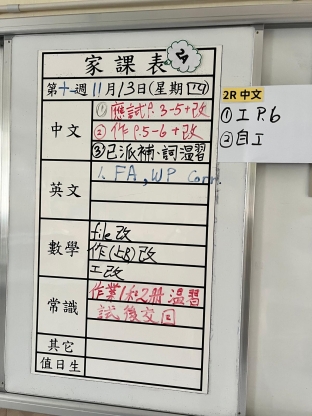 家課表
第十一週 11月13日(星期四)
中文
① 應試P.3-5+改
② 作P.5-6+改
③已派補、詞溫習
英文
1. FA, WP Corr.
數學
file改
作(上B)改
工改
常識
作業1和2冊溫習
試後交回
其它
值日生
2R 中文
①工 P.6
②自工